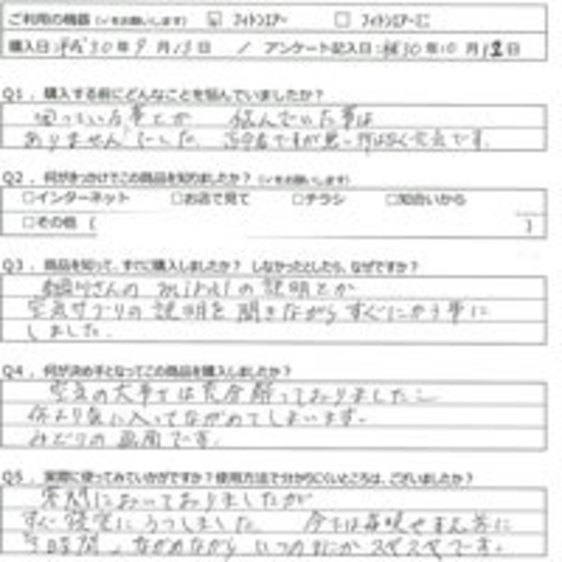 ご利用の機器（✓をお願いします） ☑ フィトンエアー □ フィトンエアーミニ
購入日：平成30年9月13日 / アンケート記入日：平成30年10月12日
Q1．購入する前にどんなことを悩んでいましたか？
困っている事とか 悩んでいた事は
ありませんでした。
Q2．何がきっかけでこの商品を知りましたか？（✓をお願いします）
□インターネット □お店で見て □チラシ □知合いから
□その他（ ）
Q3．商品を知って、すぐに購入しましたか？ しなかったとしたら、なぜですか？
さんの の説明とか
空気サプリの説明を聞きながらすぐにかう事に
しました。
Q4．何が決め手となってこの商品を購入しましたか？
空気の大事さは充分解っておりましたし
何より気に入ってながめてしまいます。
みどりの画面です。
Q5．実際に使ってみていかがですか？使用方法で分からにくいところは、ございましたか？
居間においておりましたが
すぐ寝室にうつしました。 今では毎晩
ながめながら いつのまにかスヤスヤです。